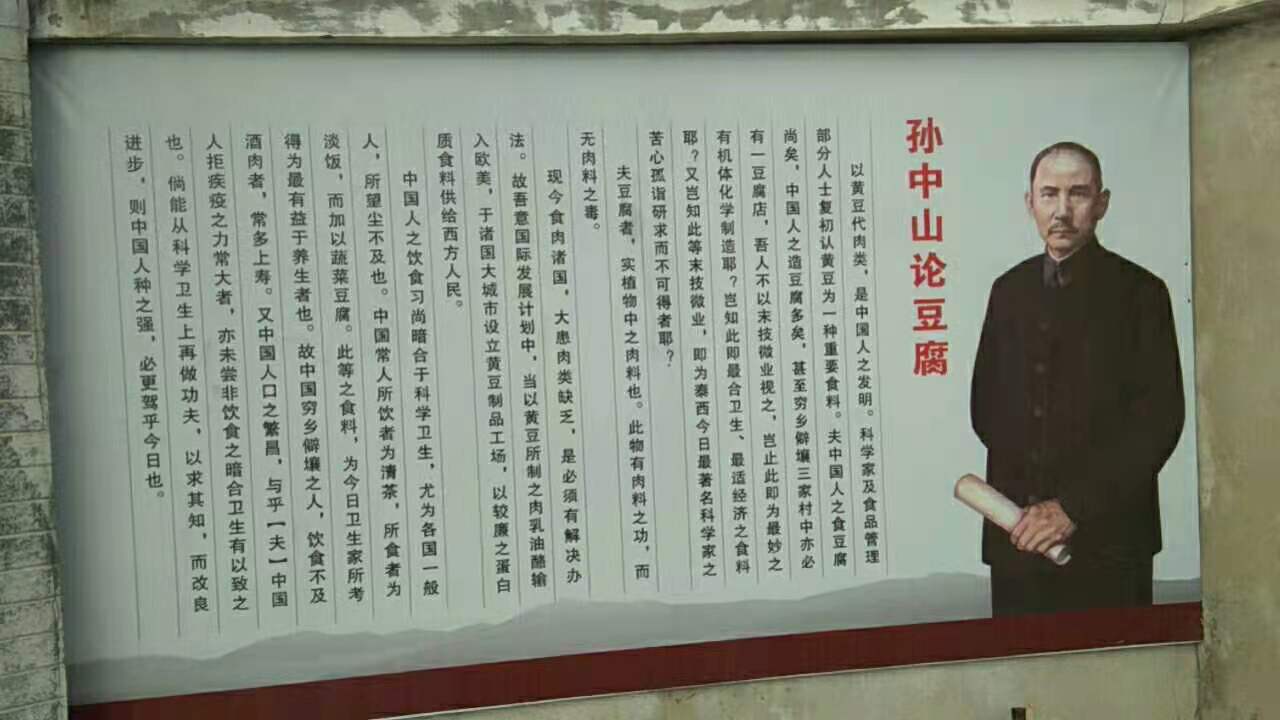 孙中山论豆腐
以黄豆代肉类，是中国人之发明。科学家及食品管理
部分人士复初认黄豆为一种重要食料。夫中国人之食豆腐
尚矣，中国人之造豆腐多矣，甚至穷乡僻壤三家村中亦必
有一豆腐店，吾人不以末技微业视之，岂止此即为最妙之
有机体化学制造耶？岂知此即最合卫生、最适经济之食料
耶？又岂知此等末技微业，即为泰西今日最著名科学家之
苦心孤诣研求而不可得者耶？
夫豆腐者，实植物中之肉料也。此物有肉料之功，而
无肉料之毒。
现今食肉诸国，大患肉类缺乏，是必须有解决办
法。故吾意国际发展计划中，当以黄豆所制之肉乳油酪输
入欧美，于诸国大城市设立黄豆制品工场，以较廉之蛋白
质食料供给西方人民。
中国人之饮食习尚暗合于科学卫生，尤为各国一般
人，所望尘不及也。中国常人所饮者为清茶，所食者为
淡饭，而加以蔬菜豆腐。此等之食料，为今日卫生家所考
得为最有益于养生者也。故中国穷乡僻壤之人，饮食不及
酒肉者，常多上寿。又中国人口之繁昌，与乎【夫】中国
人拒疾疫之力常大者，亦未尝非饮食之暗合卫生有以致之
也。倘能从科学卫生上再做功夫，以求其知，而改良
进步，则中国人种之强，必更驾乎今日也。